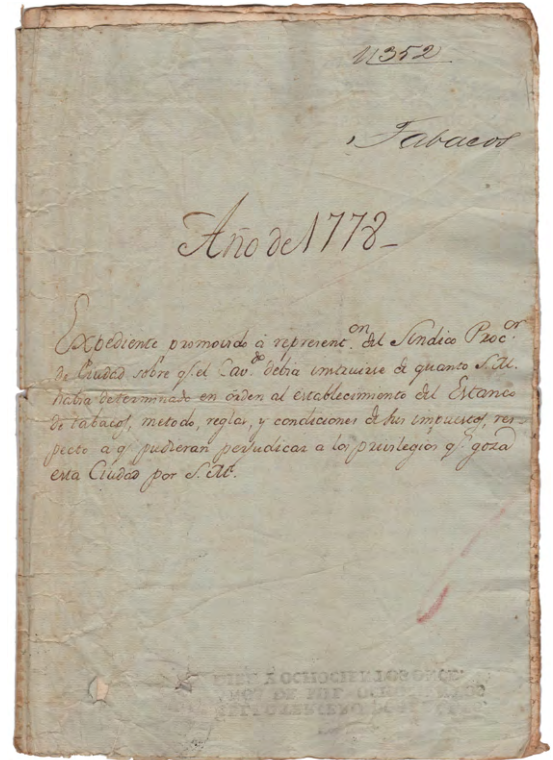 N352
Tabacos
Año de 1778
Expediente promovido à represent.on del Sindico Proc.or
de Ciudad sobre q.e el Cav.do debia instruirse de quanto S.M.
habia determinado en orden al establecimiento del Estanco
de tabacos, metodo, reglas, y condiciones de sus impuestos, res-
pecto a q.e pudieran perjudicar a los previlegios q.e goza
esta Ciudad por S. M.
OCHOCIENTOS ONCE